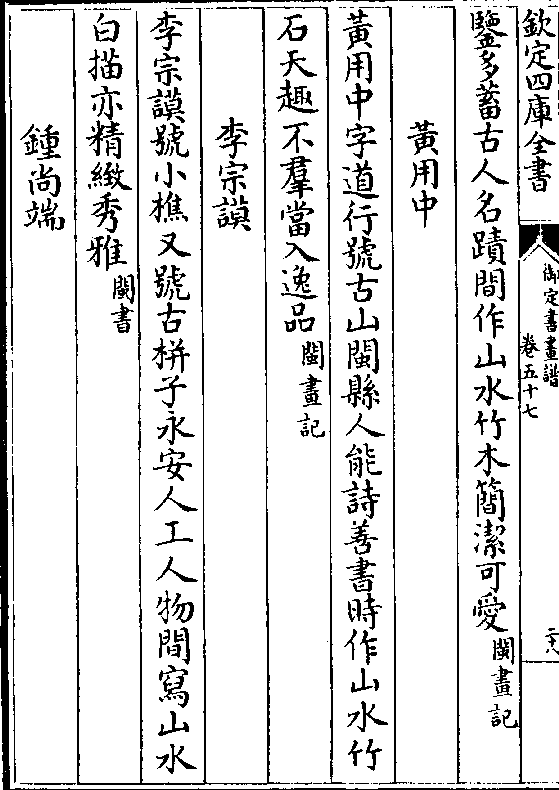 欽定四庫全書
御定書畫譜
卷五十七
二十八
鑒多蓄古人名蹟間作山水竹木簡潔可愛閩畫記
黃用中
黃用中字道行號古山閩縣人能詩善書時作山水竹
石天趣不羣當入逸品閩畫記
李宗謨
李宗謨號小樵又號古栟子永安人工人物間寫山水
白描亦精緻秀雅閩書
鍾尚端